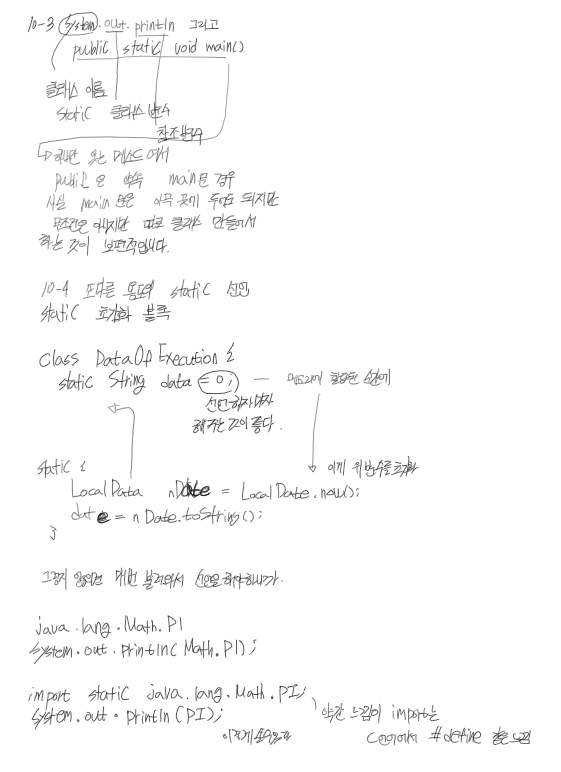 10-3 System.out.println 그리고
public static void main()
클래스 이름
static 클래스 변수
참조변수
메소드
public 은 약속 main문 경우
사실 main 문은 아무 곳에 두어도 되지만
무조건은 아니지만 따로 클래스 만들어서
하는 것이 보편적입니다.
10-4 또다른 용도의 static 선언
static 초기화 블록
class DataOfExecution {
static String data = 0; 메모리에 할당된 순간에
선언하자마자
해주는 것이 좋다.
static {
이게 위 변수를 초기화
LocalData nDate = LocalDate.now();
date = nDate.toString();
}
그렇지 않으면 매번 불러와서 선언을 해야하니까.
java.lang.Math.PI
System.out.println(Math.PI);
import static java.lang.Math.PI;
System.out.println(PI);
약간 느낌이 import는
C언어에서 #define 같은 느낌